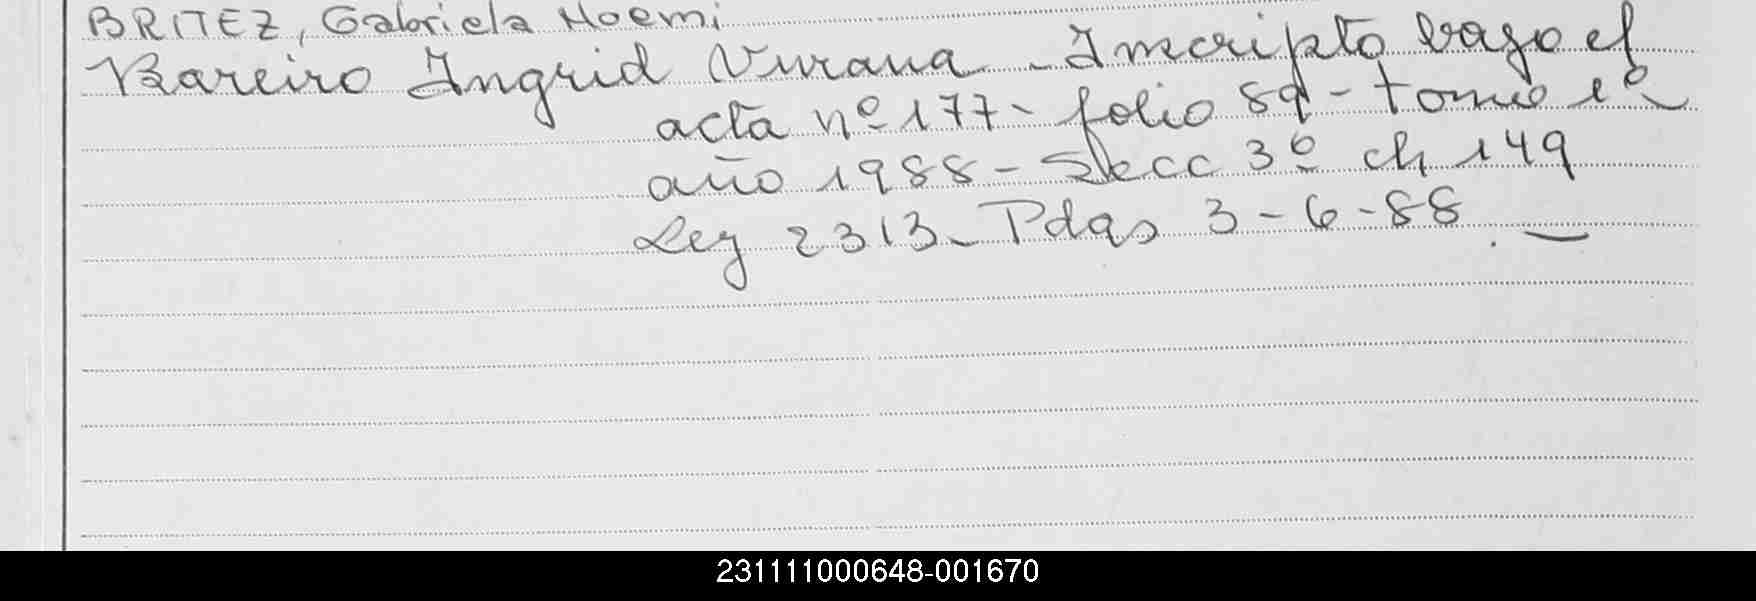 BRITEZ, Gabriela Noemi
Bareiro Ingrid Vivrana - Imcripto bajo el
acta nº 177 - folio 89 - tomo 1º
año 1988 - Secc 3º ch 149
Ley 2313 - Pdas 3-6-88. -
231111000648-001670